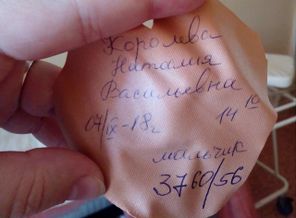 Королёва
Наталия
Васильевна
07/IX-18г 14 10
мальчик
3760/56